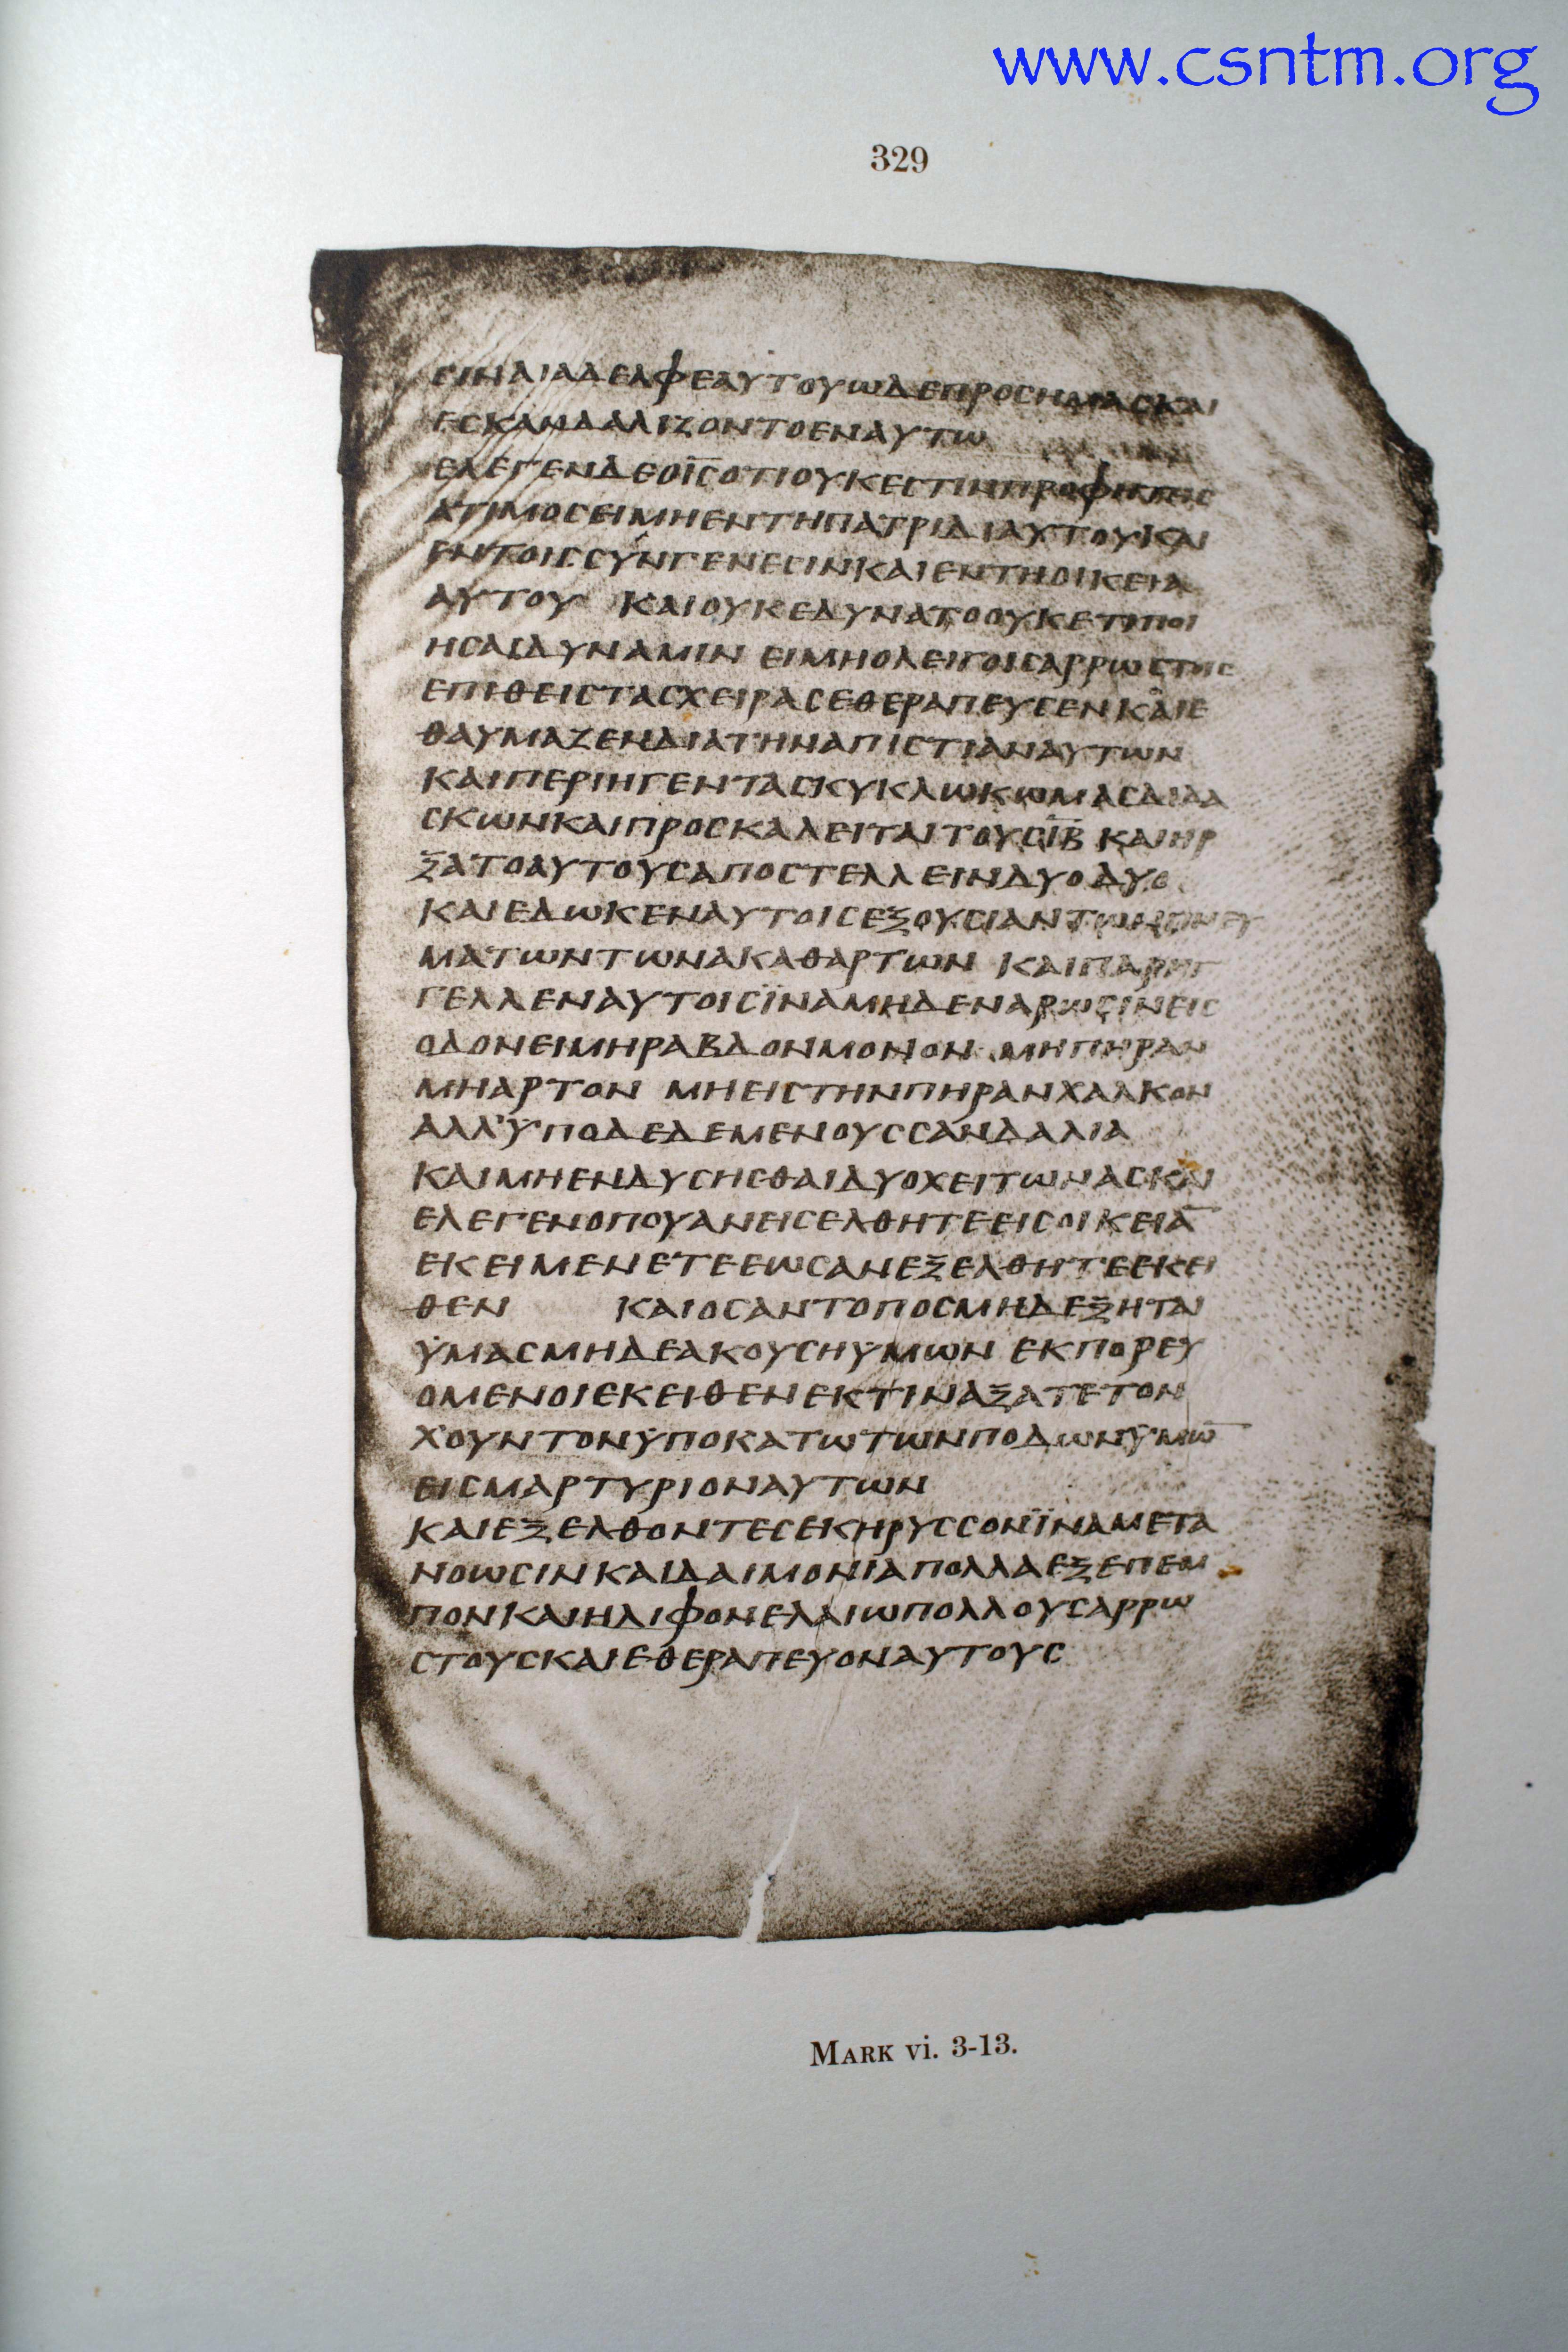 www.csntm.org
329
ϹΙΝΑΙΑΔΕΛΦΕΑΥΤΟΥΩΔΕΠΡΟϹΗΜΑϹΚΑΙ
ΕϹΚΑΝΔΑΛΙΖΟΝΤΟΕΝΑΥΤΩ
ΕΛΕΓΕΝΔΕΟΙ̅Ϲ̅ΟΤΙΟΥΚΕϹΤΙΝΠΡΟΦΗΤΗϹ
ΑΤΙΜΟϹΕΙΜΗΕΝΤΗΠΑΤΡΙΔΙΑΥΤΟΥΚΑΙ
ΕΝΤΟΙϹϹΥΝΓΕΝΕϹΙΝΚΑΙΕΝΤΗΟΙΚΕΙΑ
ΑΥΤΟΥ ΚΑΙΟΥΚΕΔΥΝΑΤΟΟΥΚΕΤΙΠΟΙ
ΗϹΑΙΔΥΝΑΜΙΝ ΕΙΜΗΟΛΕΙΓΟΙϹΑΡΡΩϹΤΟΙϹ
ΕΠΙΘΕΙϹΤΑϹΧΕΙΡΑϹΕΘΕΡΑΠΕΥϹΕΝΚΑΙΕ
ΘΑΥΜΑΖΕΝΔΙΑΤΗΝΑΠΙϹΤΙΑΝΑΥΤΩΝ
ΚΑΙΠΕΡΙΗΓΕΝΤΑϹΚΥΚΛΩΚΩΜΑϹΔΙΔΑ
ϹΚΩΝΚΑΙΠΡΟϹΚΑΛΕΙΤΑΙΤΟΥϹΙ̅Β̅ ΚΑΙΗΡ
ΞΑΤΟΑΥΤΟΥϹΑΠΟϹΤΕΛΛΕΙΝΔΥΟΔΥΟ
ΚΑΙΕΔΩΚΕΝΑΥΤΟΙϹΕΞΟΥϹΙΑΝΤΩΝΠΝΕΥ
ΜΑΤΩΝΤΩΝΑΚΑΘΑΡΤΩΝ ΚΑΙΠΑΡΗΓ
ΓΕΛΛΕΝΑΥΤΟΙϹΪΝΑΜΗΔΕΝΑΡΩϹΙΝΕΙϹ
ΟΔΟΝΕΙΜΗΡΑΒΔΟΝΜΟΝΟΝ ΜΗΠΗΡΑΝ
ΜΗΑΡΤΟΝ ΜΗΕΙϹΤΗΝΠΗΡΑΝΧΑΛΚΟΝ
ΑΛΛ'ΫΠΟΔΕΔΕΜΕΝΟΥϹϹΑΝΔΑΛΙΑ
ΚΑΙΜΗΕΝΔΥϹΗϹΘΑΙΔΥΟΧΕΙΤΩΝΑϹΚΑΙ
ΕΛΕΓΕΝΟΠΟΥΑΝΕΙϹΕΛΘΗΤΕΕΙϹΟΙΚΕΙΑ̅
ΕΚΕΙΜΕΝΕΤΕΕΩϹΑΝΕΞΕΛΘΗΤΕΕΚΕΙ
ΘΕΝ ΚΑΙΟϹΑΝΤΟΠΟϹΜΗΔΕΞΗΤΑΙ
ΫΜΑϹΜΗΔΕΑΚΟΥϹΗΫΜΩΝ ΕΚΠΟΡΕΥ
ΟΜΕΝΟΙΕΚΕΙΘΕΝΕΚΤΙΝΑΞΑΤΕΤΟΝ
ΧΟΥΝΤΟΝΫΠΟΚΑΤΩΤΩΝΠΟΔΩΝΫΜΩ̅
ΕΙϹΜΑΡΤΥΡΙΟΝΑΥΤΩΝ
ΚΑΙΕΞΕΛΘΟΝΤΕϹΕΚΗΡΥϹϹΟΝΪΝΑΜΕΤΑ
ΝΟΩϹΙΝΚΑΙΔΑΙΜΟΝΙΑΠΟΛΛΑΕΞΕΠΕΜ
ΠΟΝΚΑΙΗΛΙΦΟΝΕΛΑΙΩΠΟΛΛΟΥϹΑΡΡΩ
ϹΤΟΥϹΚΑΙΕΘΕΡΑΠΕΥΟΝΑΥΤΟΥϹ
MARK vi. 3-13.